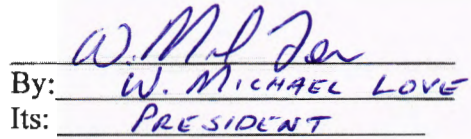 By: W. MICHAEL LOVE
Its: PRESIDENT